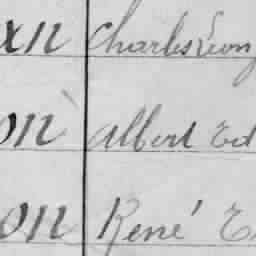 xn Charles Léon
on Albert Ed
on René E